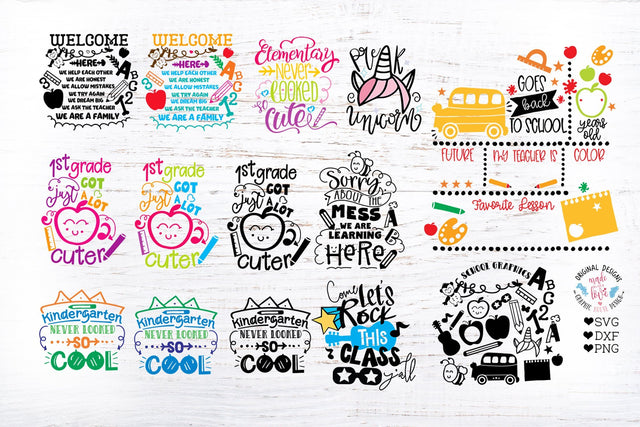 WELCOME
HERE
WE HELP EACH OTHER
WE ARE HONEST
WE ALLOW MISTAKES
WE TRY AGAIN
WE DREAM BIG
WE ASK THE TEACHER
WE ARE A FAMILY
A
B
C
1
2
WELCOME
HERE
WE HELP EACH OTHER
WE ARE HONEST
WE ALLOW MISTAKES
WE TRY AGAIN
WE DREAM BIG
WE ASK THE TEACHER
WE ARE A FAMILY
A
B
C
1
2
Elementary
Never
LOOKED
SO
Cuter
Pre-K
Unicorn
GOES
back
TO SCHOOL
years
old
FUTURE
MY TEACHER IS
COLOR
Favorite Lesson
1st grade
Just GOT
A LOT
cuter
1st grade
Just GOT
A LOT
cuter
1st grade
Just GOT
A LOT
cuter
Sorry
ABOUT THE
MESS
WE ARE
LEARNING
HERE
A
B
C
Kindergarten
NEVER LOOKED
SO
COOL
Kindergarten
NEVER LOOKED
SO
COOL
Kindergarten
NEVER LOOKED
SO
COOL
Come
Let's
Rock
THIS
CLASS
y'all
SCHOOL GRAPHICS
A
B
C
1
2
A
ORIGINAL DESIGNS
made
with
love
SVG
DXF
PNG